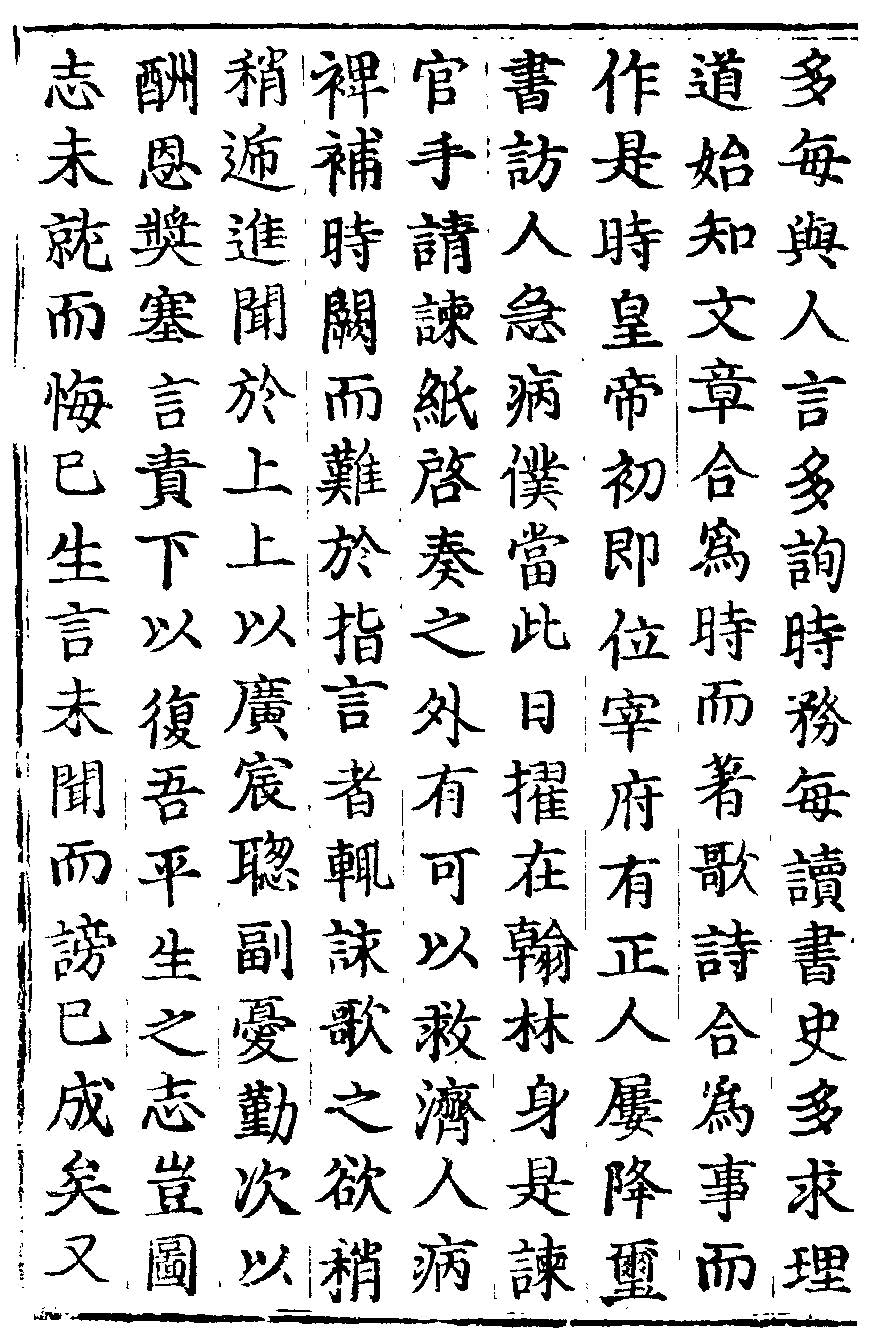 多每與人言多詢時務每讀書史多求理
道始知文章合爲時而著歌詩合為事而
作是時皇帝初即位宰府有正人屢降璽
書訪人急病僕當此日擢在翰林身是諫
官手請諫紙啓奏之外有可以救濟人病
裨補時闕而難於指言者輒詠歌之欲稍
稍遞進聞於上上以廣宸聦副憂勤次以
酬恩奬塞言責下以復吾平生之志豈圖
志未就而悔已生言未聞而謗已成矣又